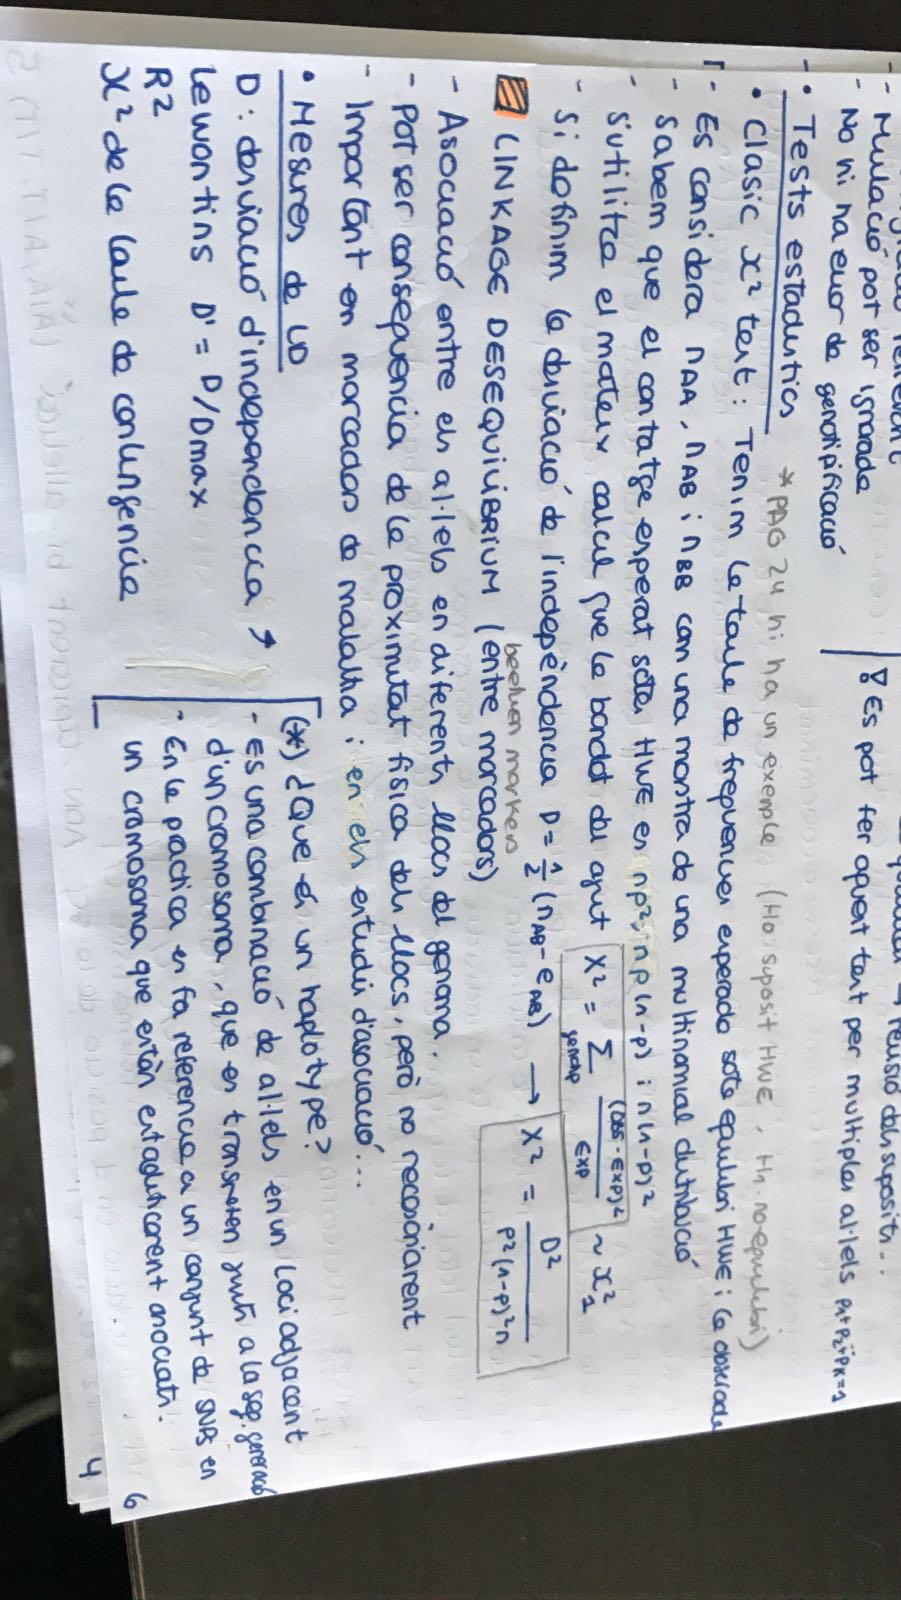 - Mutació pot ser ignorada
- No hi ha error de genotipificació
→ revisió dels suposits...
! Es pot fer aquest test per multiples al·lels P1+P2+...PK=1
• Tests estadistics
*PAG 24 hi ha un exemple (H0 suposit HWE, H1 no equilibri)
• Clasic X² test: Tenim la taula de frequencies esperada sota equilibri HWE i la observada
- Es considera nAA, nAB i nBB com una mostra de una multinomial distribució
- Sabem que el contatge esperat sota HWE es np², np(1-p) i n(1-p)²
- S'utilitza el mateix calcul que la bondat del ajust X² = Σ genotip (OBS-EXP)²/EXP ~ X²1
- Si definim la desviació de l'indepèndencia D = 1/2 (nAB - eAB) → X² = D² / P²(1-P)²n
beetwen markers
LINKAGE DESEQUILIBRIUM (entre marcadors)
- Asociació entre els al·lels en diferents llocs del genoma.
- Pot ser consequencia de la proximitat fisica dels llocs, però no necesàriament
- Important en marcadors de malaltia i en els estudis d'asociació...
• Mesures de LD
D: desviació d'independencia
Lewontins D' = D/Dmax
R2
X² de la taula de contingencia
(*) ¿Que és un haplotype?
- Es una combinació de al·lels en un Loci adjacent
d'un cromosoma, que es transmeten junts a la seg. generació
- En la practica es fa referencia a un conjunt de SNPs en
un cromosoma que estàn estadisticament asociats.
6
4